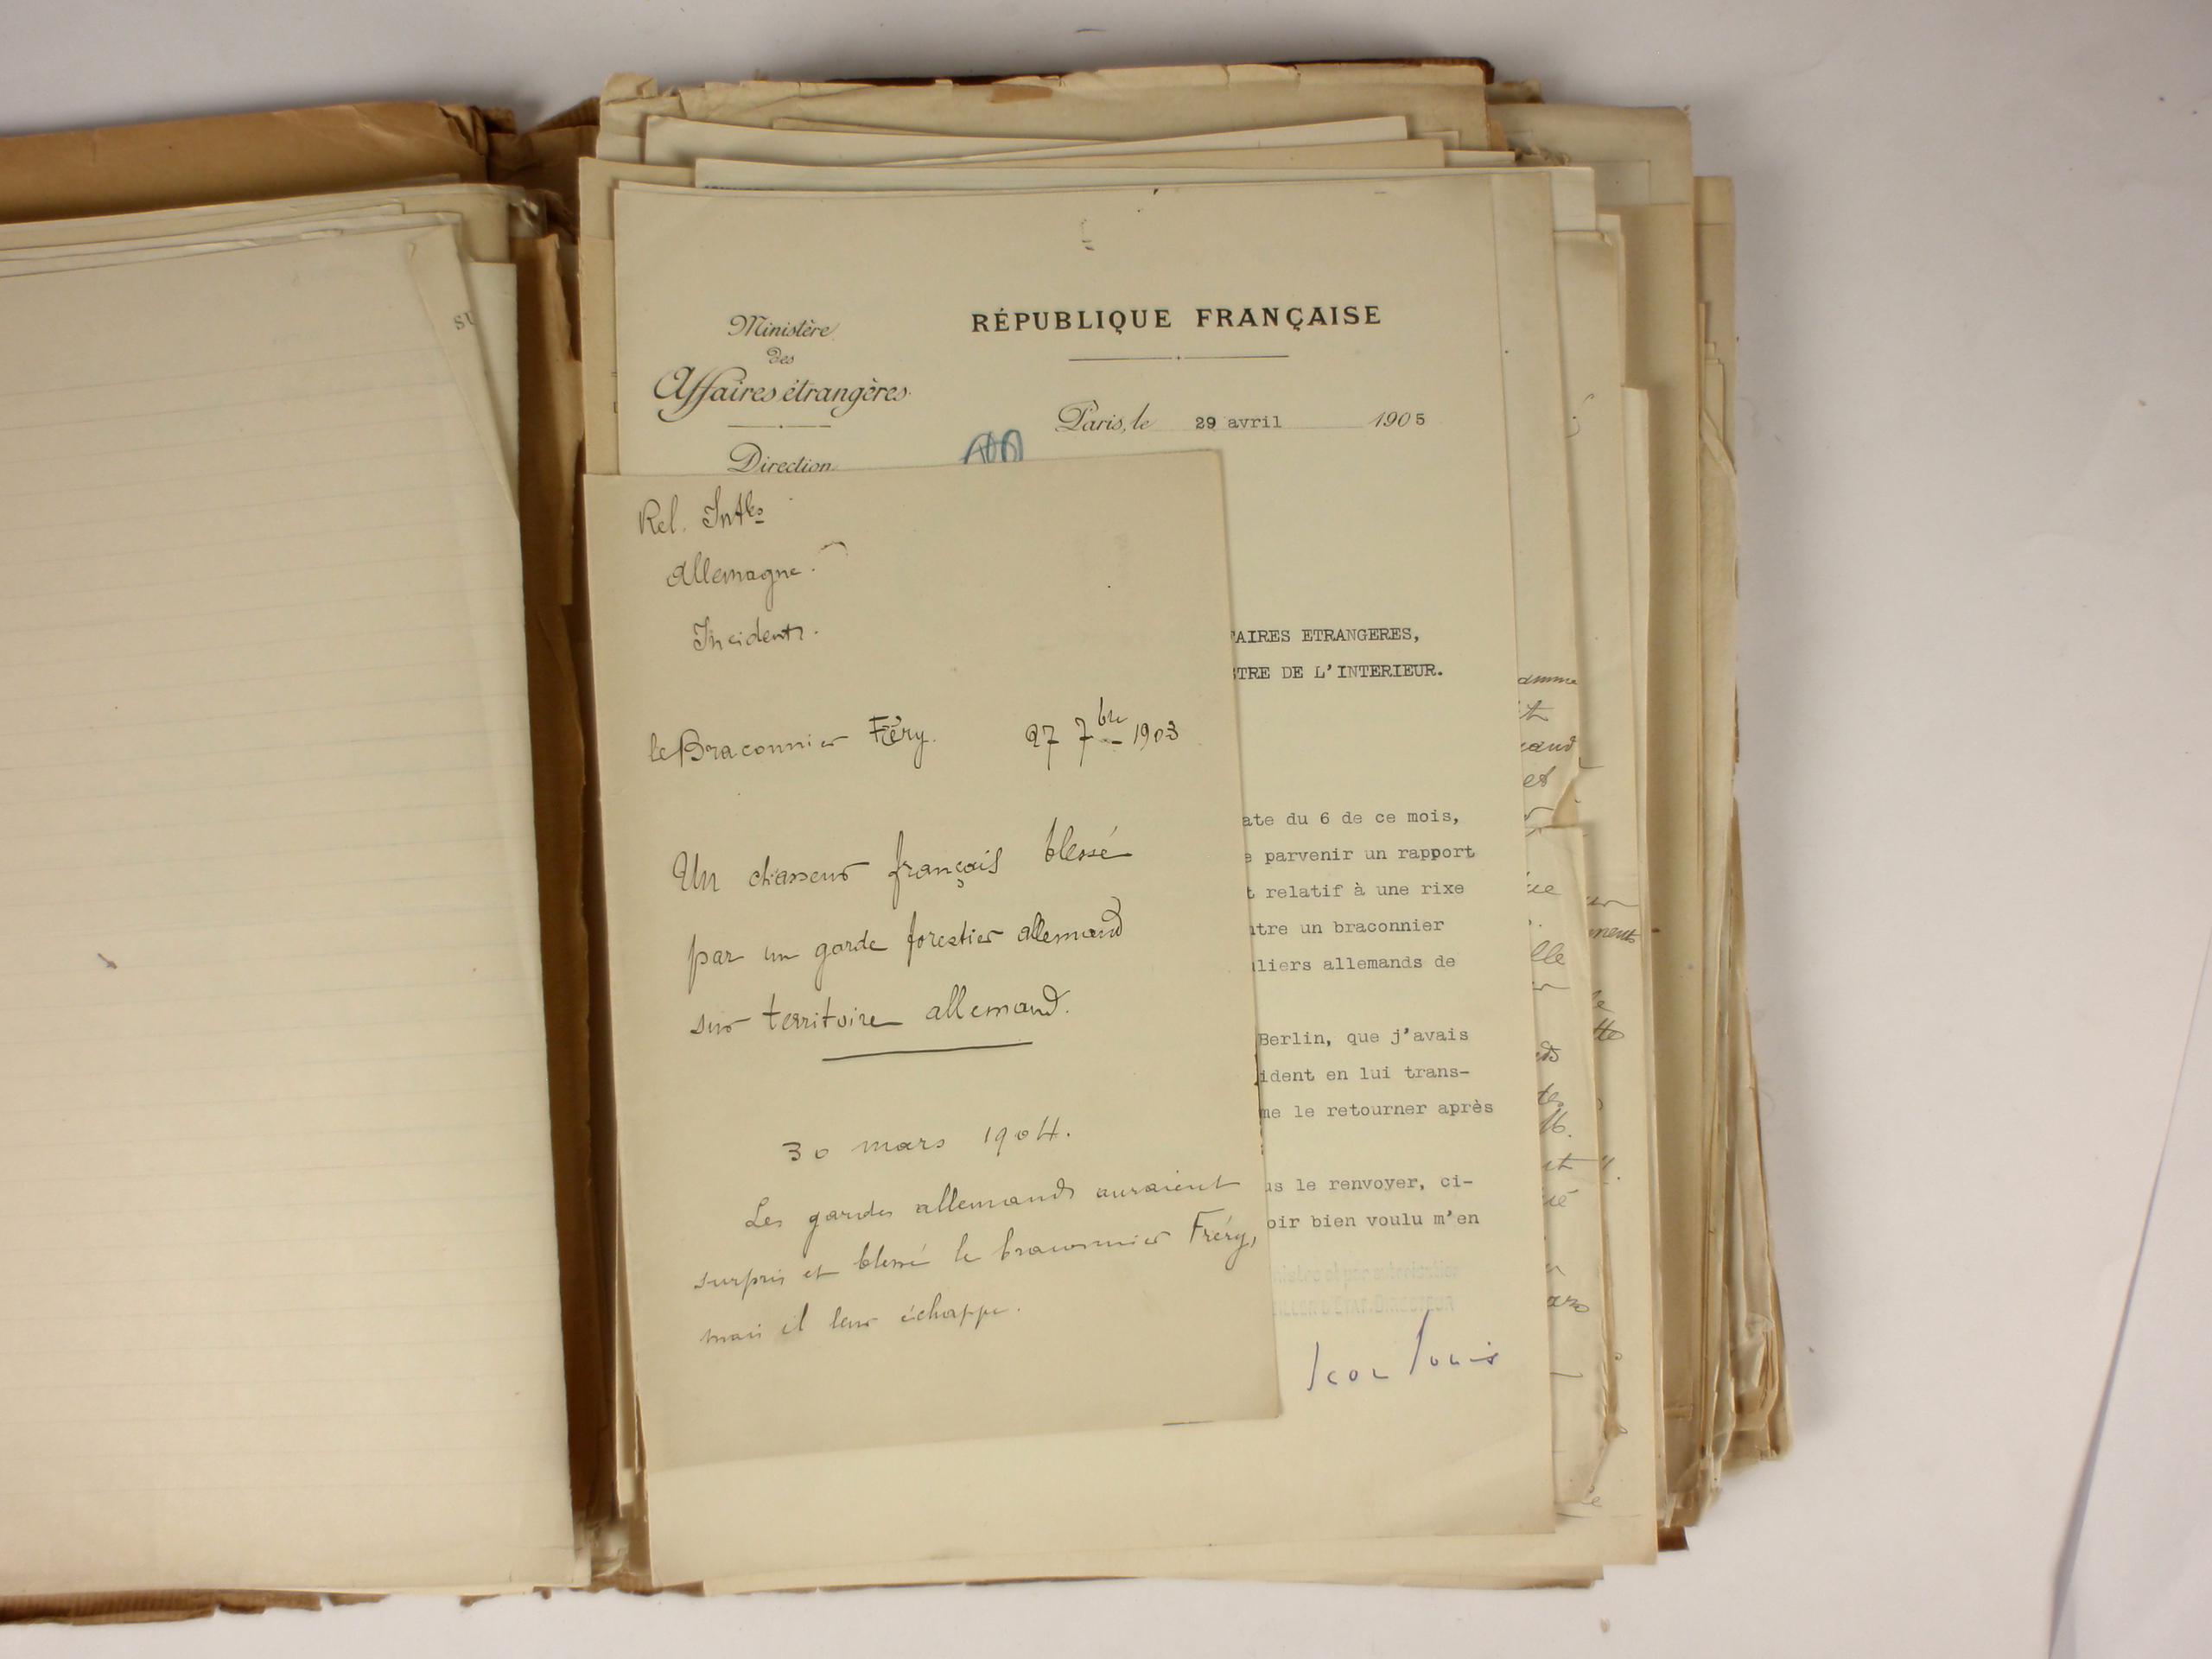 Ministère
des
Affaires étrangères
Direction
RÉPUBLIQUE FRANÇAISE
Paris, le 29 avril 1905
Rel. Intles
Allemagne.
Incidents.
le Braconnier Fréry. 27 7bre 1903
Un chasseur français blessé
par un garde forestier allemand
sur territoire allemand.
30 mars 1904.
Les gardes allemands auraient
surpris et blessé le braconnier Fréry,
mais il leur échappe.
AIRES ETRANGERES,
STRE DE L'INTERIEUR.
ate du 6 de ce mois,
e parvenir un rapport
t relatif à une rixe
ntre un braconnier
liers allemands de
Berlin, que j'avais
ident en lui trans-
me le retourner après
us le renvoyer, ci-
oir bien voulu m'en
nistre et par autorisation
ILLER D'ETAT-DIRECTEUR
amme
et
elle